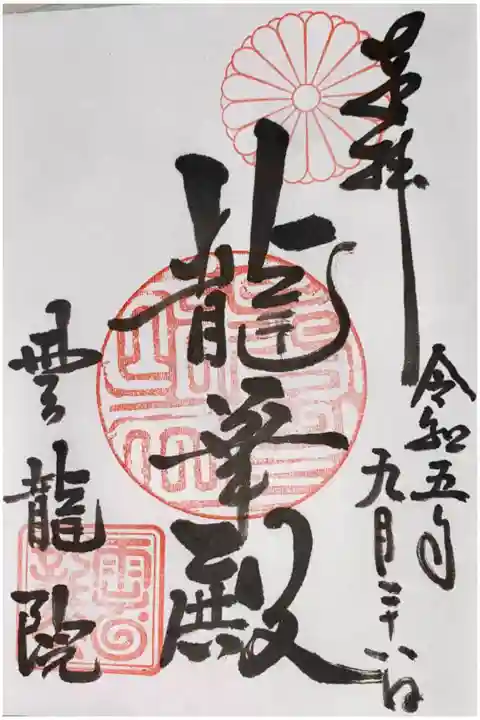 奉拝
令和五年
九月二十八日
龍華殿
雲龍院